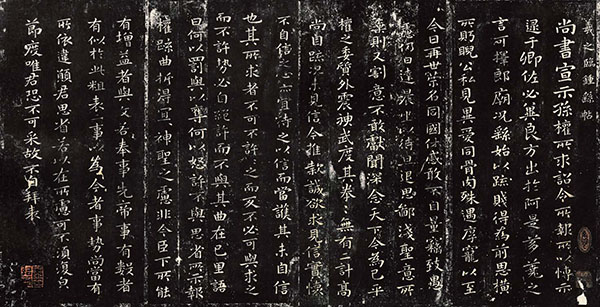 羲之臨鍾繇帖
尚書宣示孫權所求詔令所報所以博示
逮于卿佐必冀良方出於阿是芻蕘之
言可擇郎廟況繇始以疏賤得為前恩橫
所盱睨公私見異愛同骨肉殊遇厚寵以至
今日再世榮名同國休慼敢不自量竊致愚
慮仍日達晨坐以待旦退思鄙淺聖意所
棄則又割意不敢獻聞深念天下今為已平
權之委質外震神武度其拳々無有二計高
尚自疏況未見信今推款誠欲求見信實懷
不自信之心亦宜待之以信而當護其未自信
也其所求者不可不許許之而反不必可與求之
而不許勢必自絕許而不與其曲在己里語
曰何以罰與以奪何以怒許不與思省所示報
權疏曲折得宜々神聖之慮非今臣下所能
有增益昔與文若奉事先帝事有數者
有似於此粗表二事以為今者事勢尚當有
所依違願君思省若以在所慮可不須復皃
節度唯君恐不可采故不自拜表